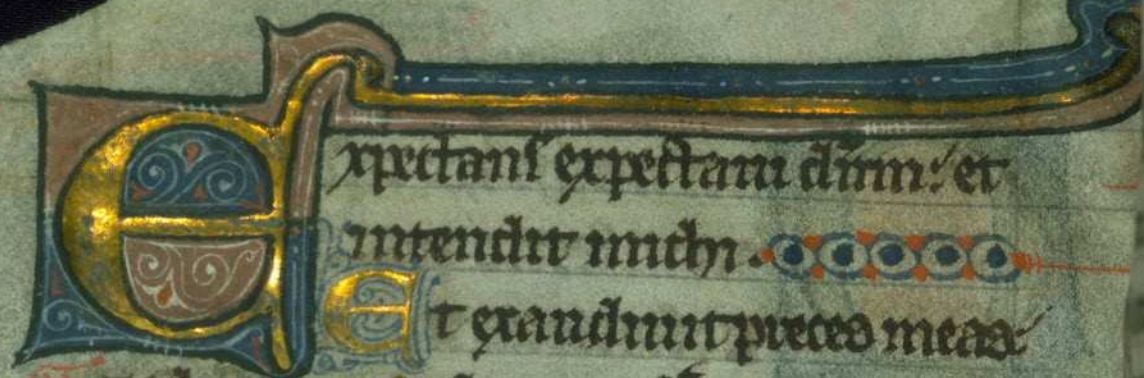 Expectans expectaui dnm: et
intendit michi.
Et exaudiuit preces meas